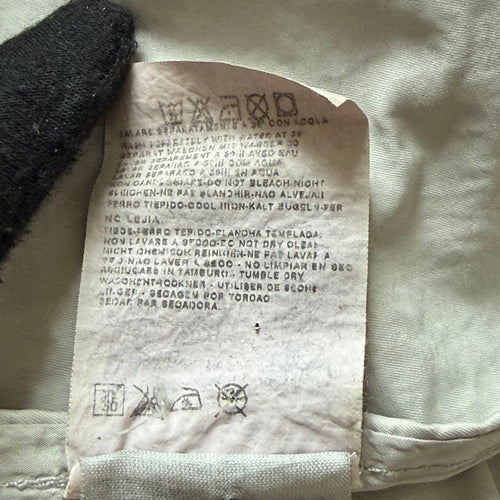 LAVARE SEPARATAMENTE A 30° CON ACQUA
WASH SEPERATELY WITH WATER AT 30
SEPARAT WASCHEN MIT WASSER 30
LAVER SEPAREMENT A 30°C AVEC EAU
LAVAR SEPARADO A 30°C EN AGUA
NON CANDEGGIARE-DO NOT BLEACH-NICHT
BLEICHEN-NE PAS BLANCHIR-NAO ALVEJAR
FERRO TIEPIDO-COOL IRON-KALT BUGELN-FER
NO LEJIA.
TIEDE-FERRO TEPIDO-PLANCHA TEMPLADA.
NON LAVARE A SECCO-DO NOT DRY CLEAN
NICHT CHEMISCH REINIGEN-NE PAS LAVAR A
LAVAR A SECO - NO LIMPIAR EN SEC
ASCIUGARE IN TAMBURO - TUMBLE DRY
WASCHENTROCKNER - UTILISER DE SECHE
LINGER - SECAGEM POR TOROAO
SECAR PAR SECADORA.
30